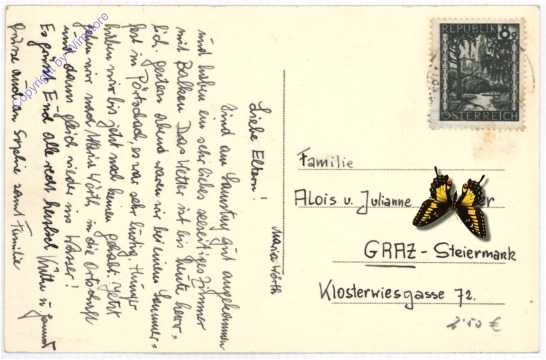 Maria Wörth
Liebe Eltern!
Sind am Samstag gut angekommen
und haben ein sehr liebes seeseitiges Zimmer
mit Balkon. Das Wetter ist bis heute herr-
lich, gestern abend waren wir bei einem Sommer-
fest in Pörtschach, es war sehr lustig. Hunger
haben wir bis jetzt noch keinen gehabt. Jetzt
gehen wir nach Maria Wörth in die Ortschaft
und dann gleich wieder ins Wasser!
Es grüsst Euch alle recht herzlich
Grüsse auch an Sophie samt Familie
Copyright by Wincore
REPUBLIK 8g
ÖSTERREICH
Familie
Alois u. Julianne
GRAZ - Steiermark
Klosterwiesgasse 72.
2.50 €